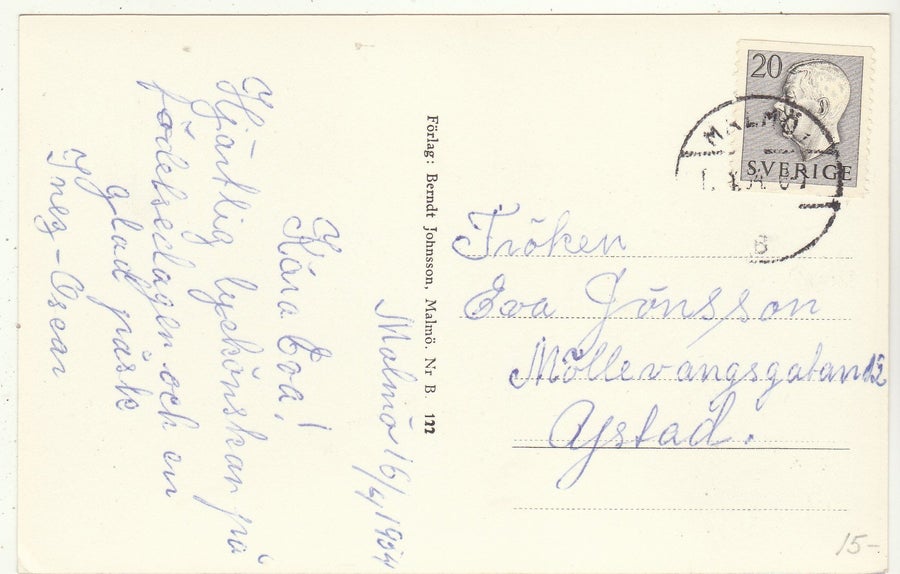 Malmö 16/4 1954
Kära Eva!
Hjärtlig lyckönskan på
födelsedagen och en
glad påsk
Inez-Oscar
Förlag: Berndt Johnsson, Malmö. Nr B 122
20
SVERIGE
MALMÖ
B
Fröken
Eva Jönsson
Möllevangsgatan 12
Ystad.
15-